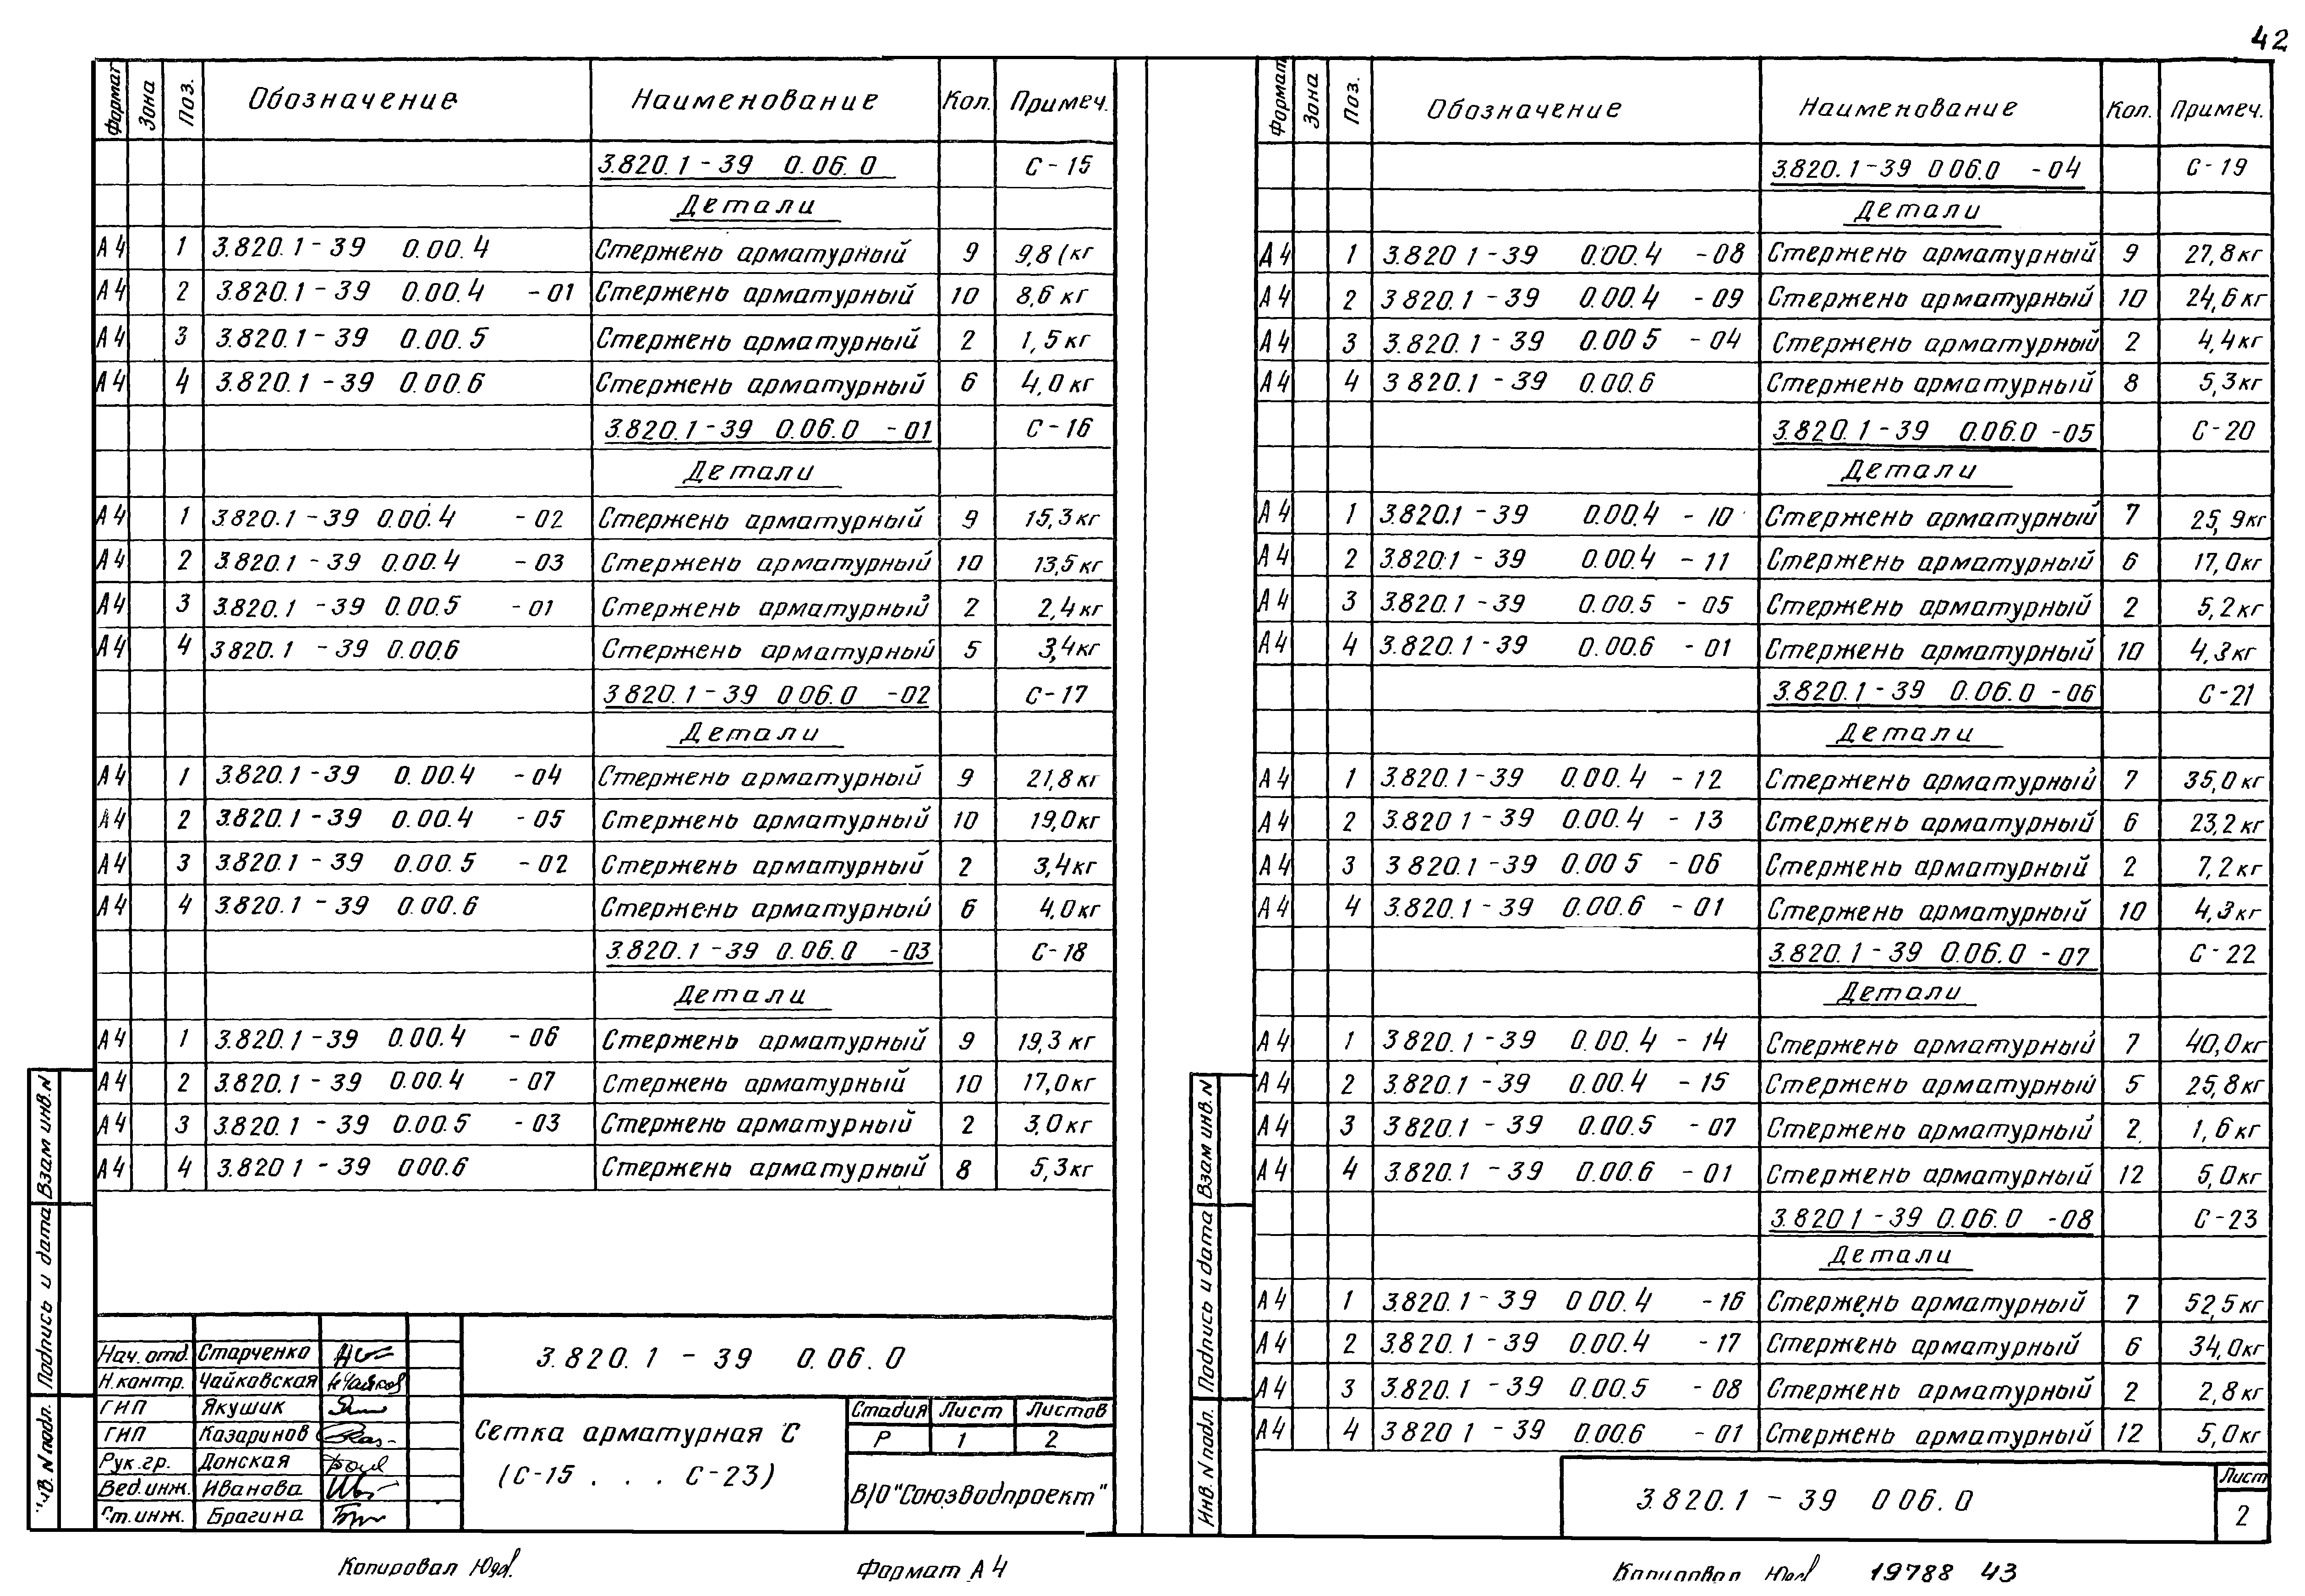 42
Формат Зона Поз. Обозначение Наименование Кол. Примеч.
3.820.1-39 0.06.0 С-15
Детали
А4 1 3.820.1-39 0.00.4 Стержень арматурный 9 9,8(кг
А4 2 3.820.1-39 0.00.4 -01 Стержень арматурный 10 8,6 кг
А4 3 3.820.1-39 0.00.5 Стержень арматурный 2 1,5 кг
А4 4 3.820.1-39 0.00.6 Стержень арматурный 6 4,0 кг
3.820.1-39 0.06.0 -01 С-16
Детали
А4 1 3.820.1-39 0.00.4 -02 Стержень арматурный 9 15,3 кг
А4 2 3.820.1-39 0.00.4 -03 Стержень арматурный 10 13,5 кг
А4 3 3.820.1-39 0.00.5 -01 Стержень арматурный 2 2,4 кг
А4 4 3820.1-39 0.00.6 Стержень арматурный 5 3,4кг
3.820.1-39 0.06.0 -02 С-17
Детали
А4 1 3.820.1-39 0.00.4 -04 Стержень арматурный 9 21,8 кг
А4 2 3.820.1-39 0.00.4 -05 Стержень арматурный 10 19,0кг
А4 3 3.820.1-39 0.00.5 -02 Стержень арматурный 2 3,4кг
А4 4 3.820.1-39 0.00.6 Стержень арматурный 6 4,0кг
3.820.1-39 0.06.0 -03 С-18
Детали
А4 1 3.820.1-39 0.00.4 -06 Стержень арматурный 9 19,3 кг
А4 2 3.820.1-39 0.00.4 -07 Стержень арматурный 10 17,0кг
А4 3 3.820.1-39 0.00.5 -03 Стержень арматурный 2 3,0 кг
А4 4 3.820 1-39 000.6 Стержень арматурный 8 5,3 кг
Взам инв. N
Подпись и дата
в. N подл.
Нач. отд. Старченко
Н.контр. Чайковская
ГИП Якушик
ГИП Казаринов
Рук.гр. Донская
Вед.инж. Иванова
Ст.инж. Брагина
3.820.1-39 0.06.0
Сетка арматурная С
(С-15 . . . С-23)
Стадия Лист Листов
Р 1 2
В/О "Союзводпроект"
Копировал
Формат А4
Формат Зона Поз. Обозначение Наименование Кол. Примеч.
3.820.1-39 0 06.0 -04 С-19
Детали
А4 1 3.820 1-39 0.00.4 -08 Стержень арматурный 9 27,8 кг
А4 2 3 820.1-39 0.00.4 -09 Стержень арматурный 10 24,6 кг
А4 3 3.820.1-39 0.00 5 -04 Стержень арматурный 2 4,4кг
А4 4 3 820.1-39 0.00.6 Стержень арматурный 8 5,3кг
3.820.1-39 0.06.0 -05 С-20
Детали
А4 1 3.820.1-39 0.00.4 -10 Стержень арматурный 7 25,9кг
А4 2 3.820.1-39 0.00.4 -11 Стержень арматурный 6 17,0кг
А4 3 3.820.1-39 0.00.5 -05 Стержень арматурный 2 5,2кг
А4 4 3.820.1-39 0.00.6 -01 Стержень арматурный 10 4,3кг
3.820.1-39 0.06.0 -06 С-21
Детали
А4 1 3.820.1-39 0.00.4 -12 Стержень арматурный 7 35,0 кг
А4 2 3.820 1-39 0.00.4 -13 Стержень арматурный 6 23,2 кг
А4 3 3 820.1-39 0.00 5 -06 Стержень арматурный 2 7,2 кг
А4 4 3.820.1-39 0.00.6 -01 Стержень арматурный 10 4,3кг
3.820.1-39 0.06.0 -07 С-22
Детали
А4 1 3 820.1-39 0.00.4 -14 Стержень арматурный 7 40,0кг
А4 2 3.820.1-39 0.00.4 -15 Стержень арматурный 5 25,8кг
А4 3 3 820.1-39 0.00.5 -07 Стержень арматурный 2 1,6 кг
А4 4 3.820.1-39 0.00.6 -01 Стержень арматурный 12 5,0кг
3.820 1-39 0.06.0 -08 С-23
Детали
А4 1 3.820.1-39 0 00.4 -16 Стержень арматурный 7 52,5 кг
А4 2 3.820.1-39 0.00.4 -17 Стержень арматурный 6 34,0кг
А4 3 3820.1-39 0.00.5 -08 Стержень арматурный 2 2,8кг
А4 4 3820 1-39 0.00.6 -01 Стержень арматурный 12 5,0кг
Взам инв. N
Подпись и дата
Инв. N подл.
3.820.1-39 0 06.0
Лист
2
Копировал
19788 43